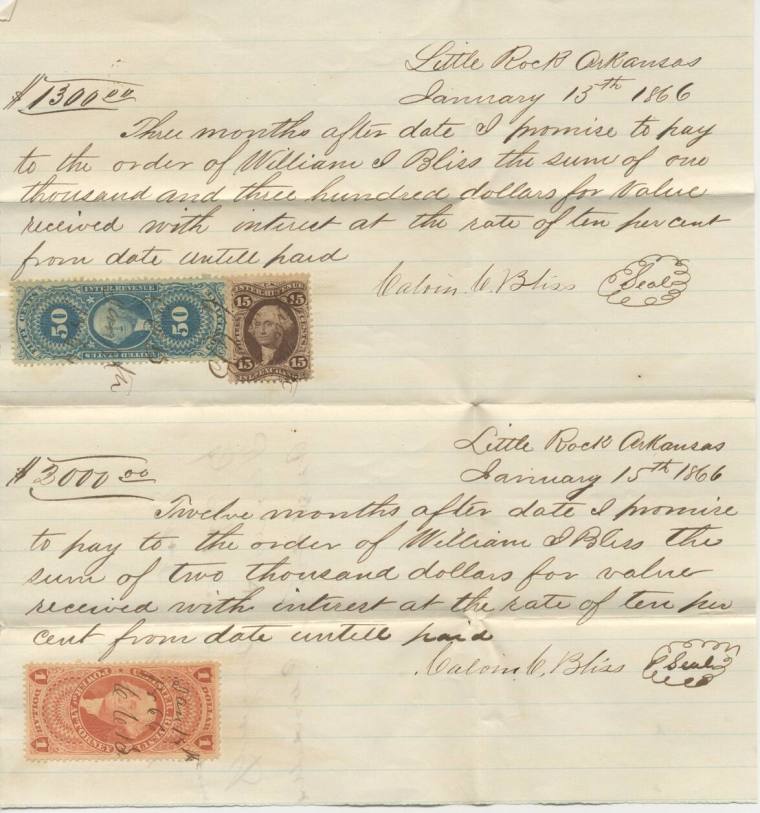 Little Rock Arkansas
$1300 00 January 15th 1866
Three months after date I promise to pay
to the order of William I Bliss the sum of one
thousand and three hundred dollars for Value
received with interest at the rate of ten per cent
from date untill paid
Calvin C. Bliss Seal
INTER. REVENUE
50 50
FIFTY CENTS
UNITED STATES
INTER. REVENUE
15 15
15 15
INL. EXCHANGE
Little Rock Arkansas
$2000 00 January 15th 1866
Twelve months after date I promise
to pay to the order of William I Bliss the
sum of two thousand dollars for value
received with interest at the rate of ten per
cent from date untill paid
Calvin C. Bliss Seal
1 1
1 1
DOLLAR
POWER OF ATTORNEY
Jan 15th
66